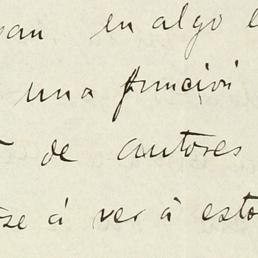 en algo
una función
de autores
á ver á esto